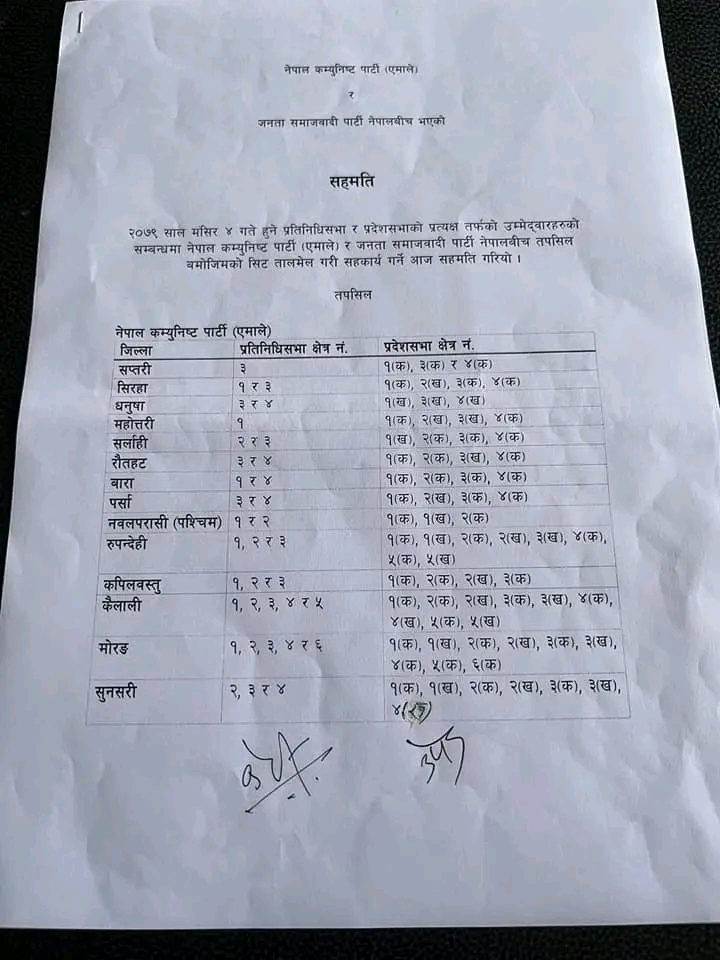 नेपाल कम्युनिष्ट पार्टी (एमाले)
र
जनता समाजवादी पार्टी नेपालबीच भएको
सहमति
२०७९ साल मंसिर ४ गते हुने प्रतिनिधिसभा र प्रदेशसभाको प्रत्यक्ष तर्फको उम्मेदवारहरुको
सम्बन्धमा नेपाल कम्युनिष्ट पार्टी (एमाले) र जनता समाजवादी पार्टी नेपालबीच तपसिल
बमोजिमको सिट तालमेल गरी सहकार्य गर्ने आज सहमति गरियो ।
तपसिल
नेपाल कम्युनिष्ट पार्टी (एमाले)
जिल्ला प्रतिनिधिसभा क्षेत्र नं. प्रदेशसभा क्षेत्र नं.
सप्तरी ३ १(क), ३(क) र ४(क)
सिरहा १ र ३ १(क), २(ख), ३(क), ४(क)
धनुषा ३ र ४ १(ख), ३(ख), ४(ख)
महोत्तरी १ १(क), २(ख), ३(ख), ४(क)
सर्लाही २ र ३ १(ख), २(क), ३(क), ४(क)
रौतहट ३ र ४ १(क), २(क), ३(ख), ४(क)
बारा १ र ४ १(क), २(क), ३(क), ४(क)
पर्सा ३ र ४ १(क), २(ख), ३(क), ४(क)
नवलपरासी (पश्चिम) १ र २ १(क), १(ख), २(क)
रुपन्देही १, २ र ३ १(क), १(ख), २(क), २(ख), ३(ख), ४(क),
५(क), ५(ख)
कपिलवस्तु १, २ र ३ १(क), २(क), २(ख), ३(क)
कैलाली १, २, ३, ४ र ५ १(क), २(क), २(ख), ३(क), ३(ख), ४(क),
४(ख), ५(क), ५(ख)
मोरङ १, २, ३, ४ र ६ १(क), १(ख), २(क), २(ख), ३(क), ३(ख),
४(क), ५(क), ६(क)
सुनसरी २, ३ र ४ १(क), १(ख), २(क), २(ख), ३(क), ३(ख),
४